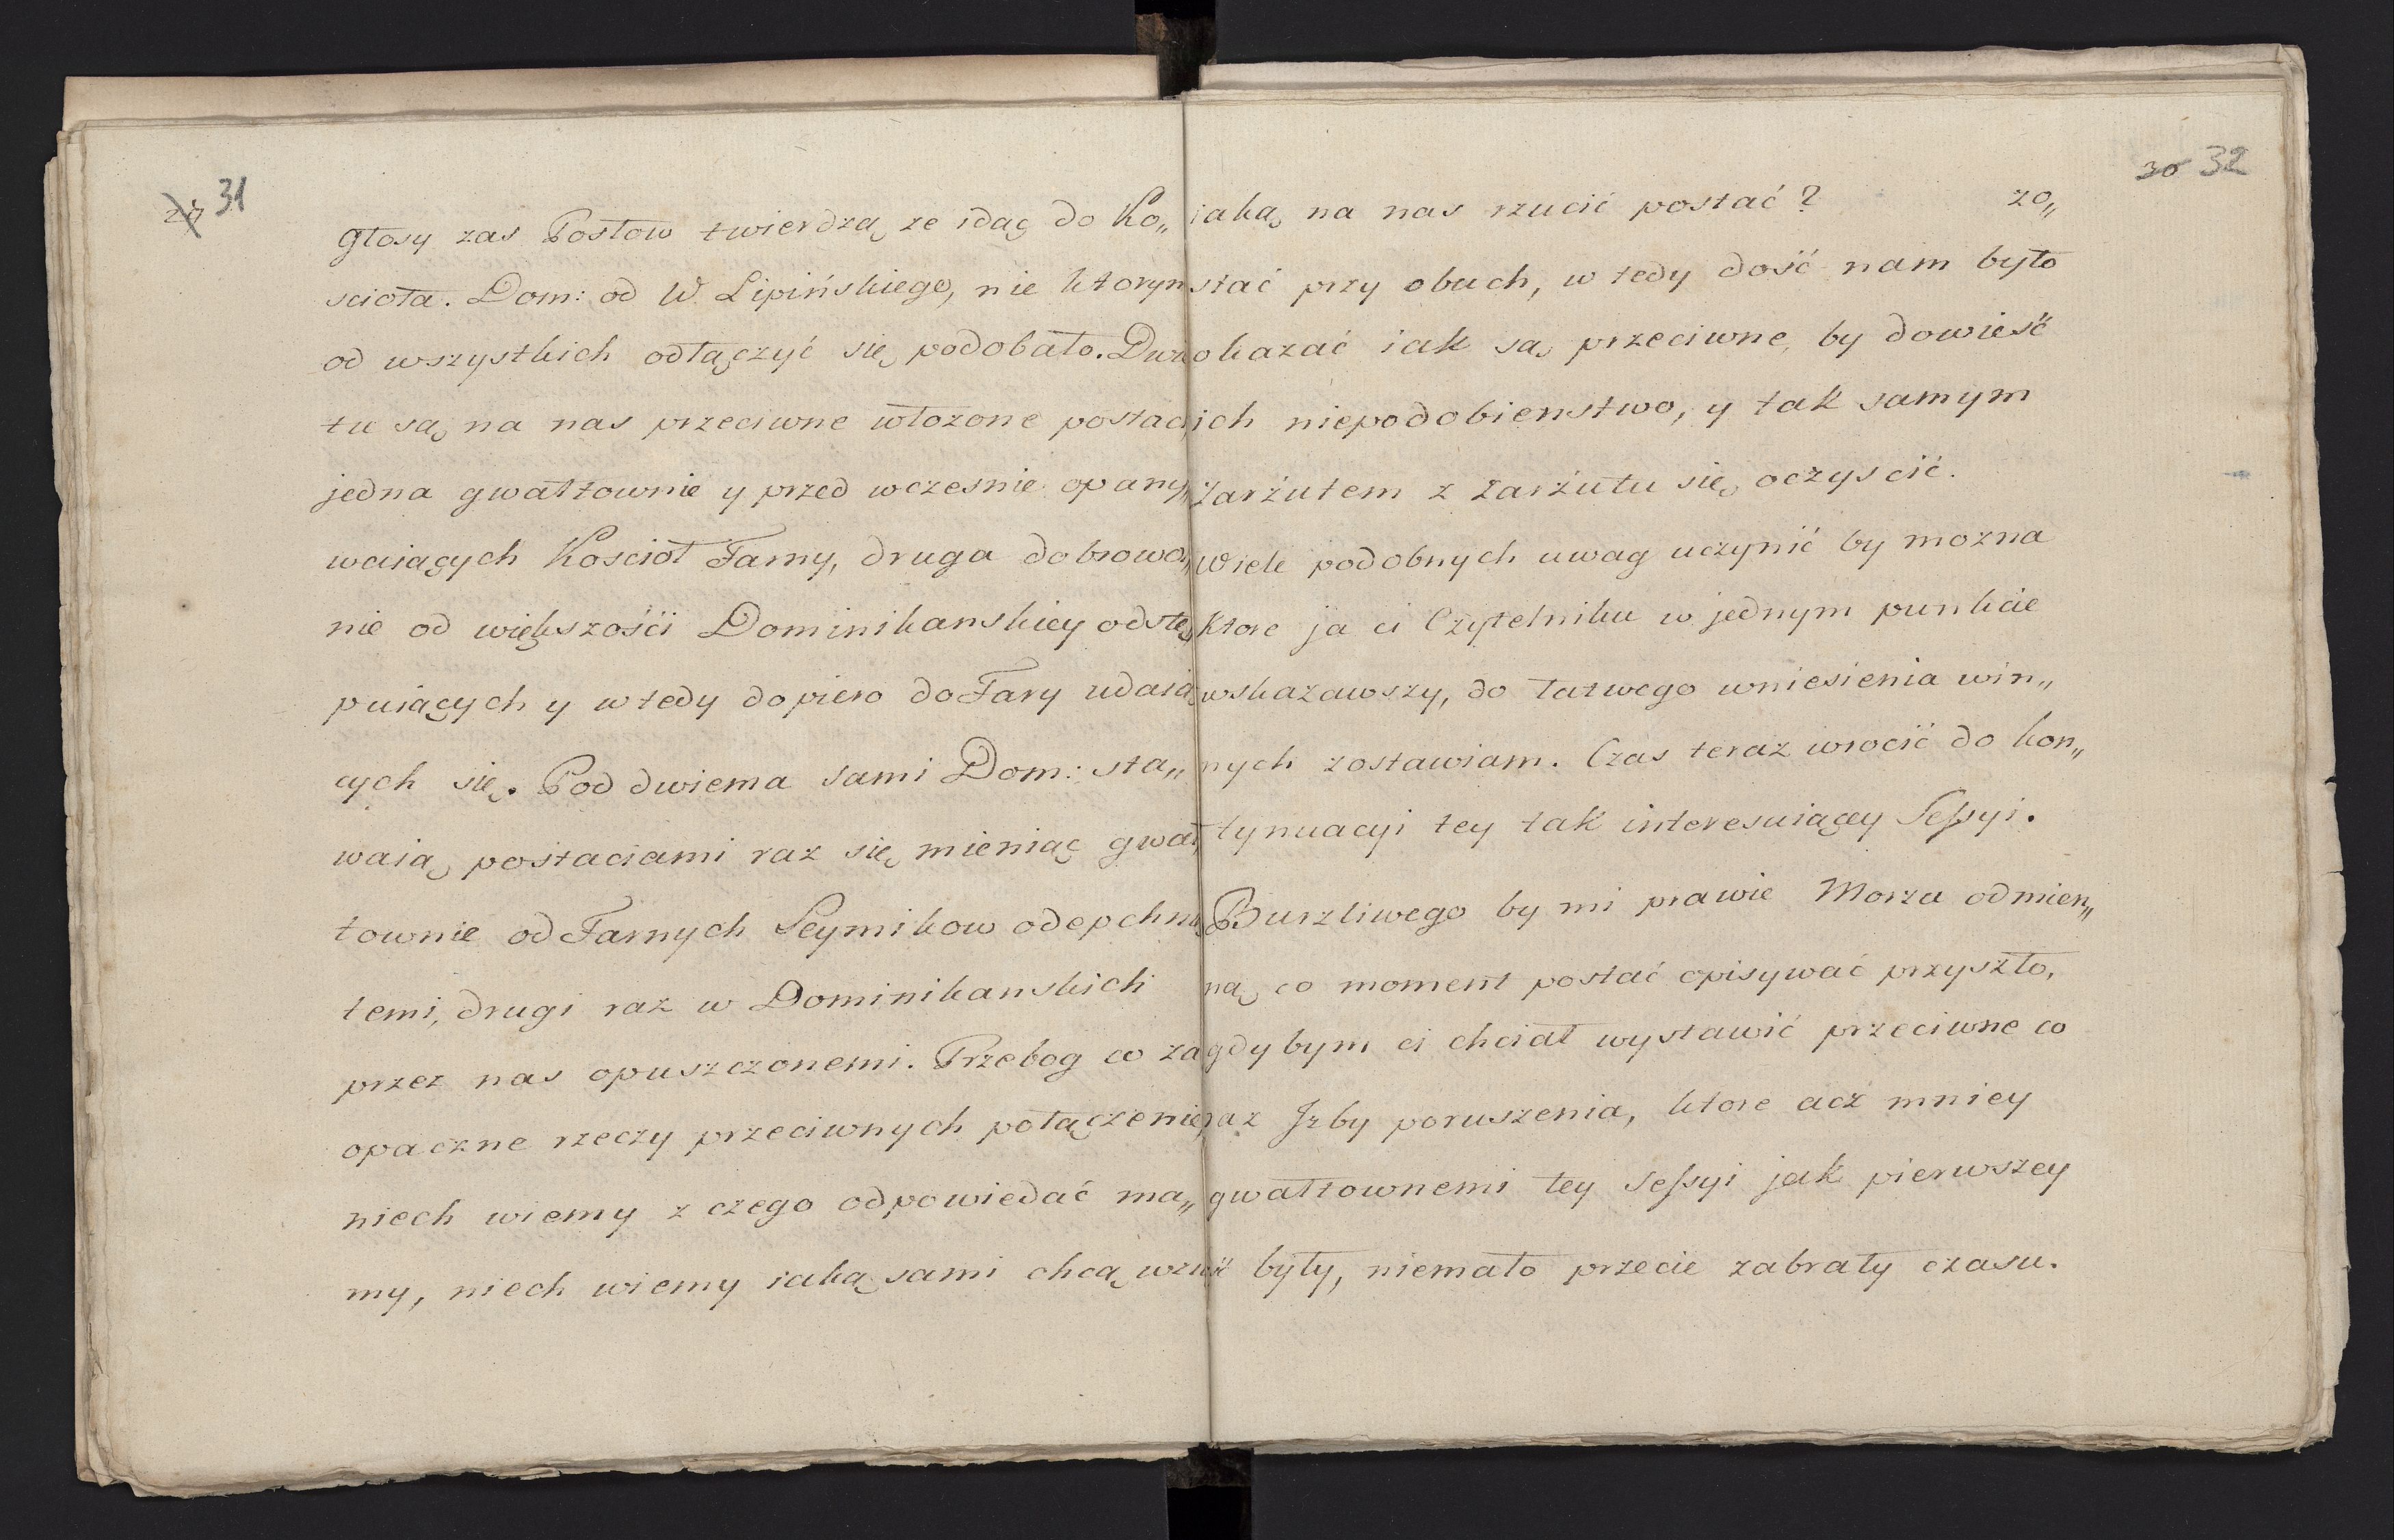 29 31
Głosy zas Posłow twierdzą ze idąc do Ko„
scioła. Dom: od W. Lipińskiego, nie ktorym
od wszystkich odłączyć się podobało. Dwie
tu są na nas przeciwne włozone postaci,
jedna gwałtownie y przed wczesnie opany„
waiących Kościoł Farny, druga dobrowol„
nie od większośći Dominikanskiey odstę„
puiących y wtedy dopiero do Fary udaią„
cych się. Pod dwiema sami Dom: sta„
waią postaciami raz się mieniąc gwał„
townie od Farnych Seymikow odepchnię„
temi, drugi raz w Dominikanskich
przez nas opuszczonemi. Przebog co za
opaczne rzeczy przeciwnych połączenie,
niech wiemy z czego odpowiedać ma„
my, niech wiemy iaką sami chcą wziąść
30 32
iaką na nas rzucić postać? zo„
stać przy obuch, w tedy dość nam było
okazać iak są przeciwne, by dowieść
ich niepodobienstwo, y tak samym
Zarżutem z Zarżutu się oczyscić.
Wiele podobnych uwag uczynić by mozna
Ktore ja ci Czytelniku w jednym punkcie
wskazawszy, do łatwego wniesienia win„
nych zostawiam. Czas teraz wrocić do kon„
tynuacyi tey tak interesuiącey Sessyi.
Burzliwego by mi prawie Morza odmien„
ną co moment postać opisywać przyszło,
gdy bym ci chciał wystawić przeciwne co
raz Jzby poruszenia, ktore acz mniey
gwałtownemi tey sessyi jak pierwszey
były, niemało przecie zabrały czasu.